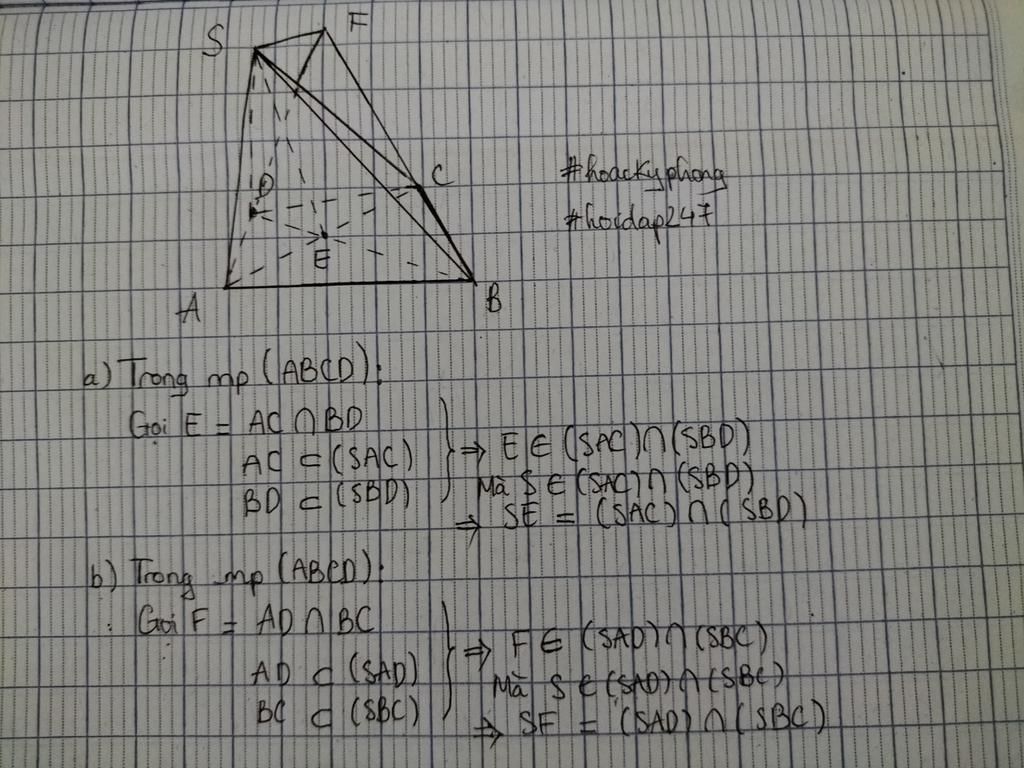 S F
D C
#hoackyphong
#hoidap247
E
A B
a) Trong mp (ABCD):
Gọi E = AC ∩ BD
AC ⊂ (SAC)
BD ⊂ (SBD)
⇒ E ∈ (SAC) ∩ (SBD)
Mà S ∈ (SAC) ∩ (SBD)
⇒ SE = (SAC) ∩ (SBD)
b) Trong mp (ABCD):
Gọi F = AD ∩ BC
AD ⊂ (SAD)
BC ⊂ (SBC)
⇒ F ∈ (SAD) ∩ (SBC)
Mà S ∈ (SAD) ∩ (SBC)
⇒ SF = (SAD) ∩ (SBC)